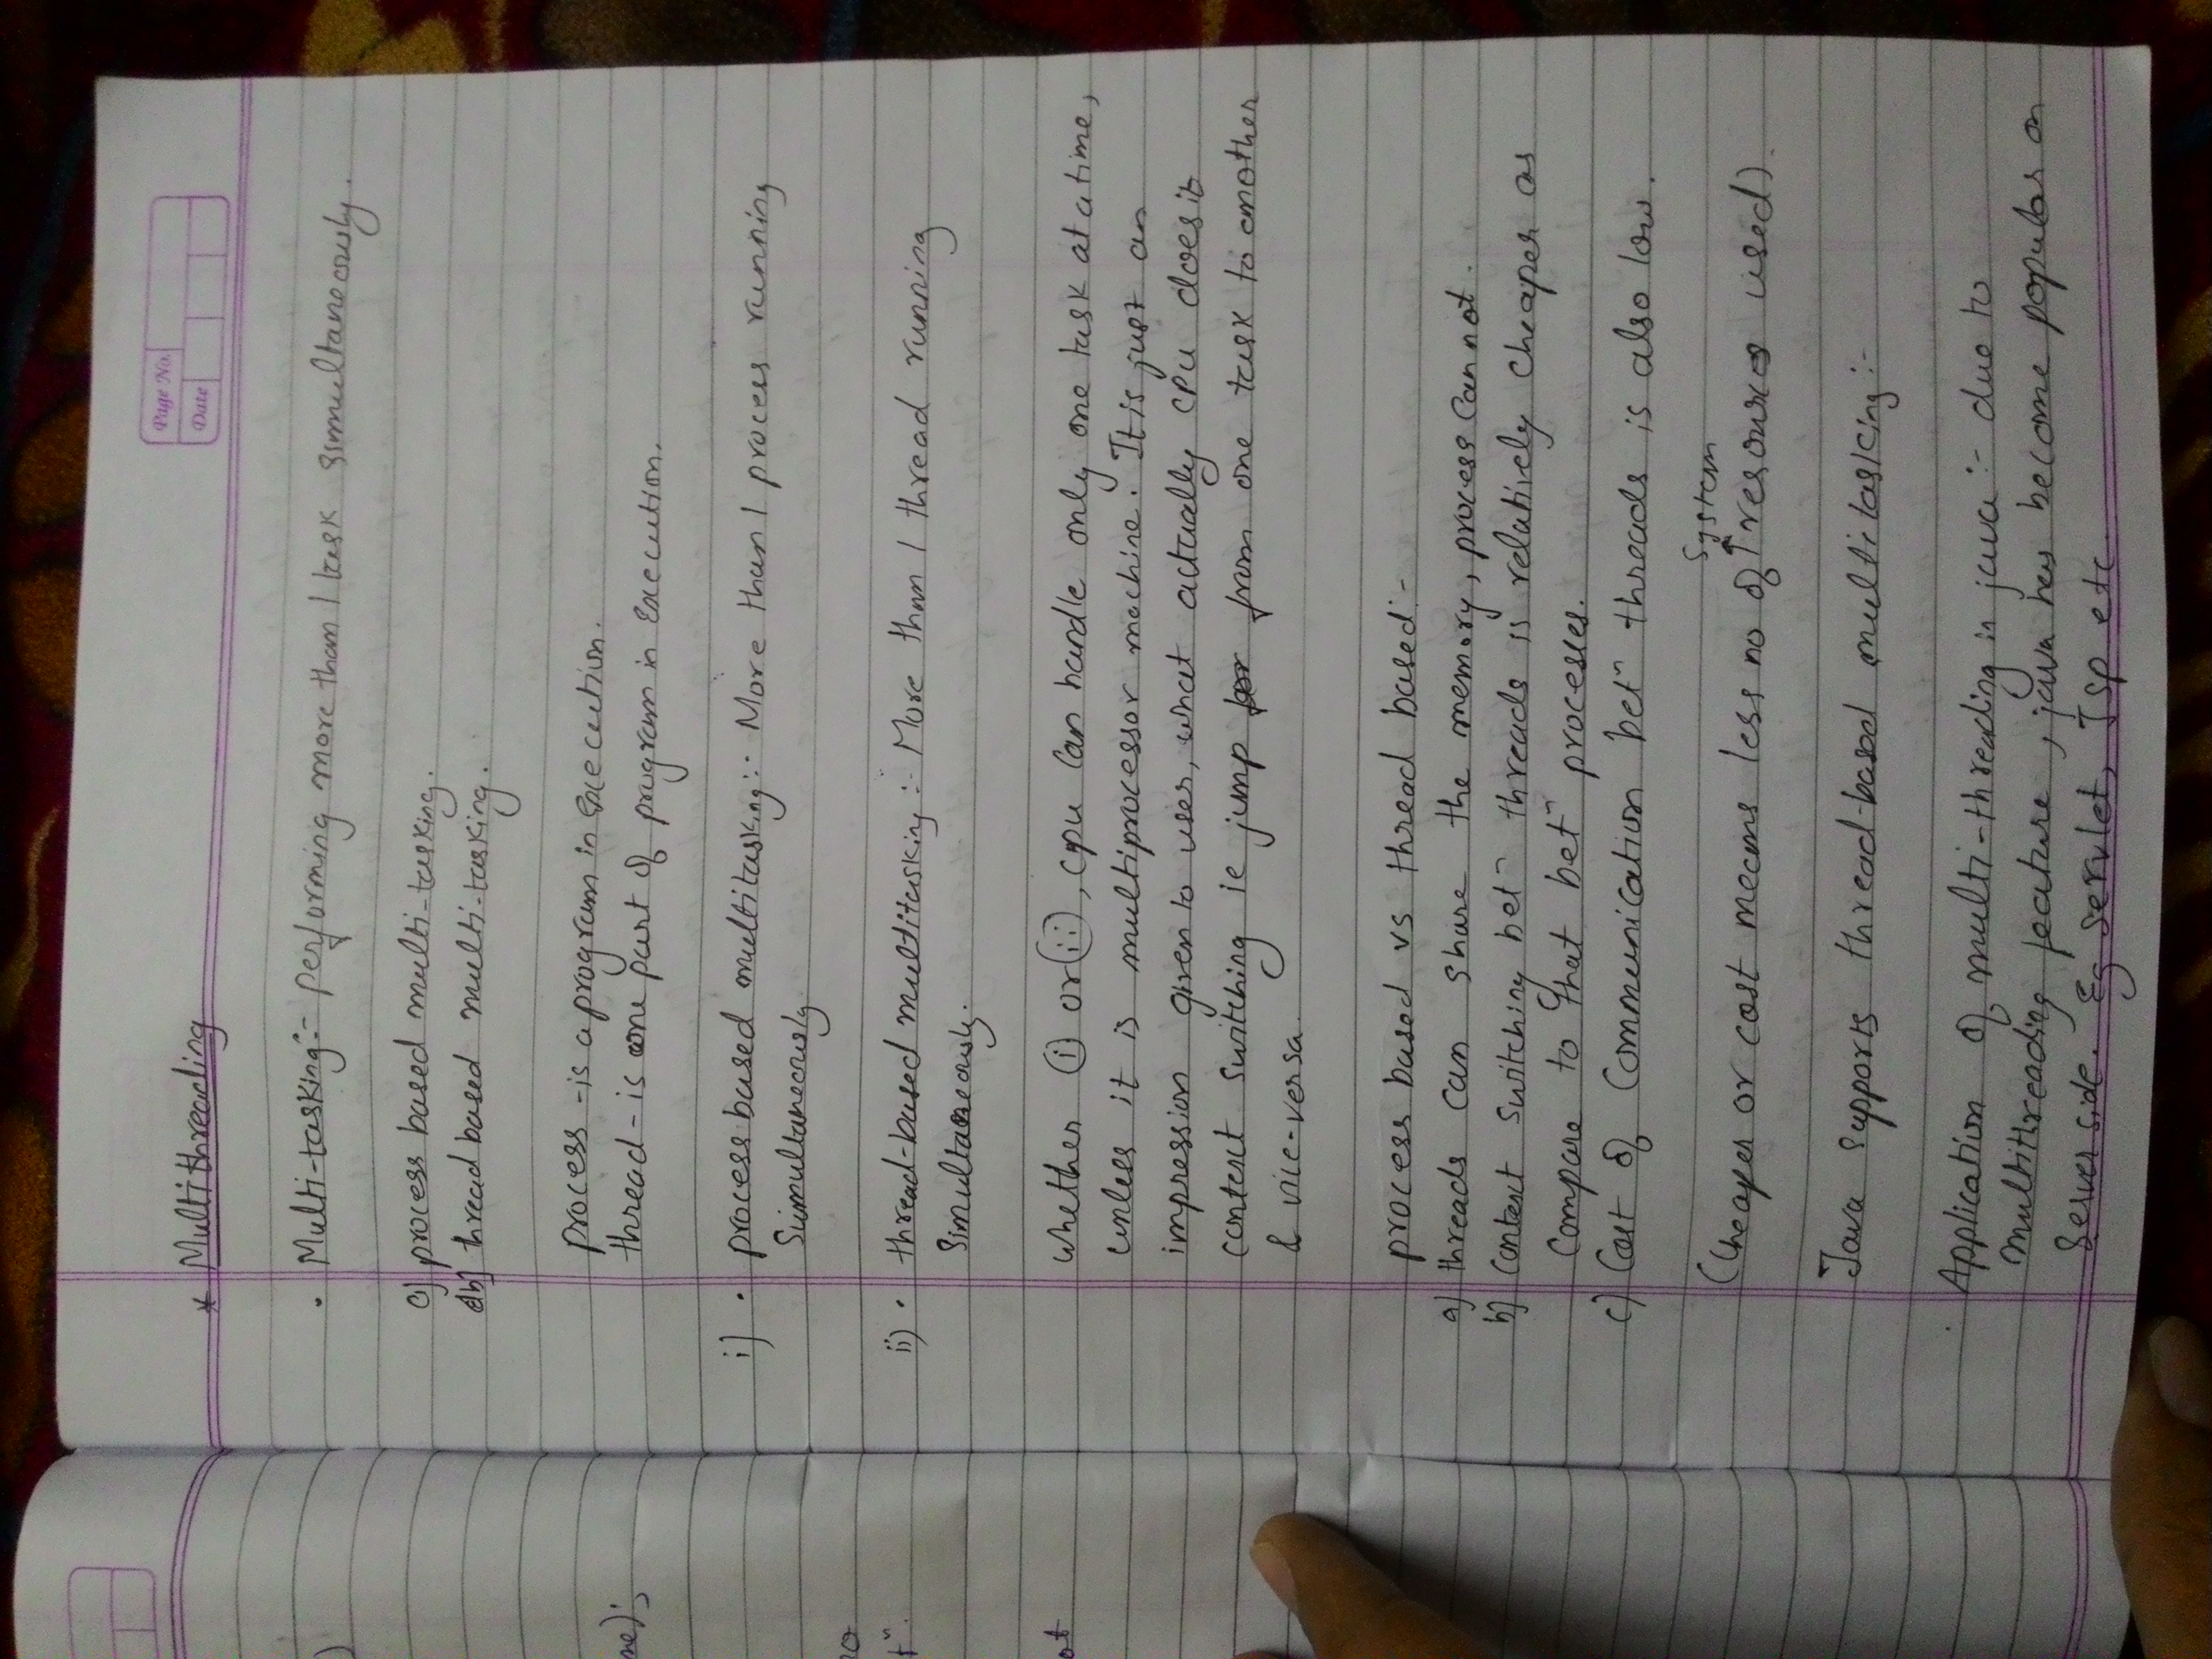 Page No.
Date
* Multithreading
. Multi-tasking:- performing more than 1 task simultaneously.
a) process based multi-tasking.
b) thread based multi-tasking.
process - is a program in Execution.
thread - is one part of program in Execution.
i) . process based multitasking:- More than 1 process running
Simultaneously
ii) . thread-based multitasking :- More than 1 thread running
Simultaneously.
whether (i) or (ii), cpu can handle only one task at a time,
unless it is multiprocessor machine. It is just an
impression given to user, what actually CPU does is
context switching ie jump for from one task to another
& vice-versa.
process based vs thread based:-
a) threads can share the memory, process cannot.
b) context switching betn threads is relatively cheaper as
compare to that betn processes.
c) Cost of Communication betn threads is also low.
System
(Cheaper or cost means less no of ↑ resources used).
Java supports thread-based multitasking :-
. Application of multi-threading in java :- due to
multithreading feature, java has become popular on
Server side. Eg servlet, Jsp etc.
ne);
no
tn.
ot